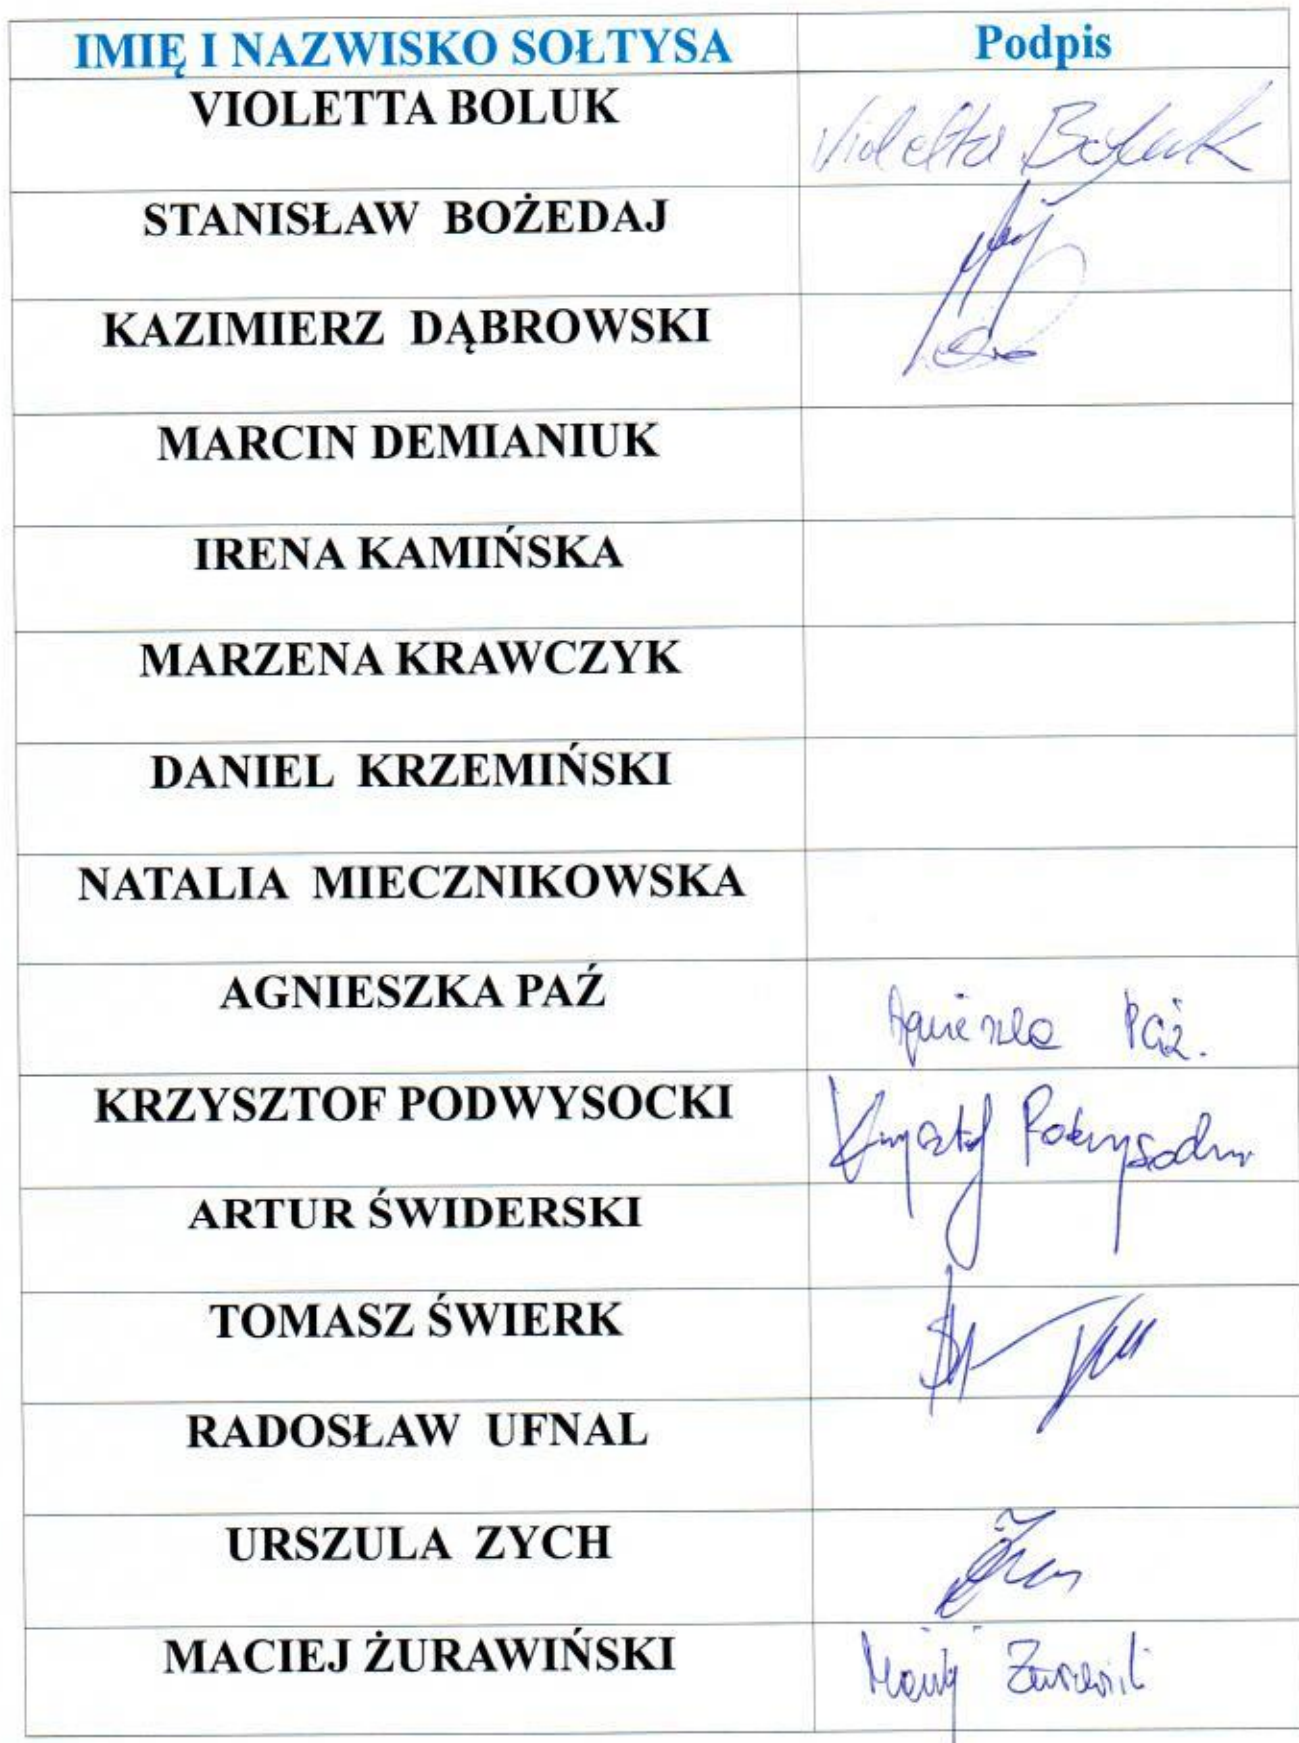 IMIĘ I NAZWISKO SOŁTYSA Podpis
VIOLETTA BOLUK Violetta Boluk
STANISŁAW BOŻEDAJ
KAZIMIERZ DĄBROWSKI
MARCIN DEMIANIUK
IRENA KAMIŃSKA
MARZENA KRAWCZYK
DANIEL KRZEMIŃSKI
NATALIA MIECZNIKOWSKA
AGNIESZKA PAŹ Agnieszka Paź.
KRZYSZTOF PODWYSOCKI Krzysztof Podwysocki
ARTUR ŚWIDERSKI
TOMASZ ŚWIERK
RADOSŁAW UFNAL
URSZULA ZYCH
MACIEJ ŻURAWIŃSKI Maciej Żurawiński